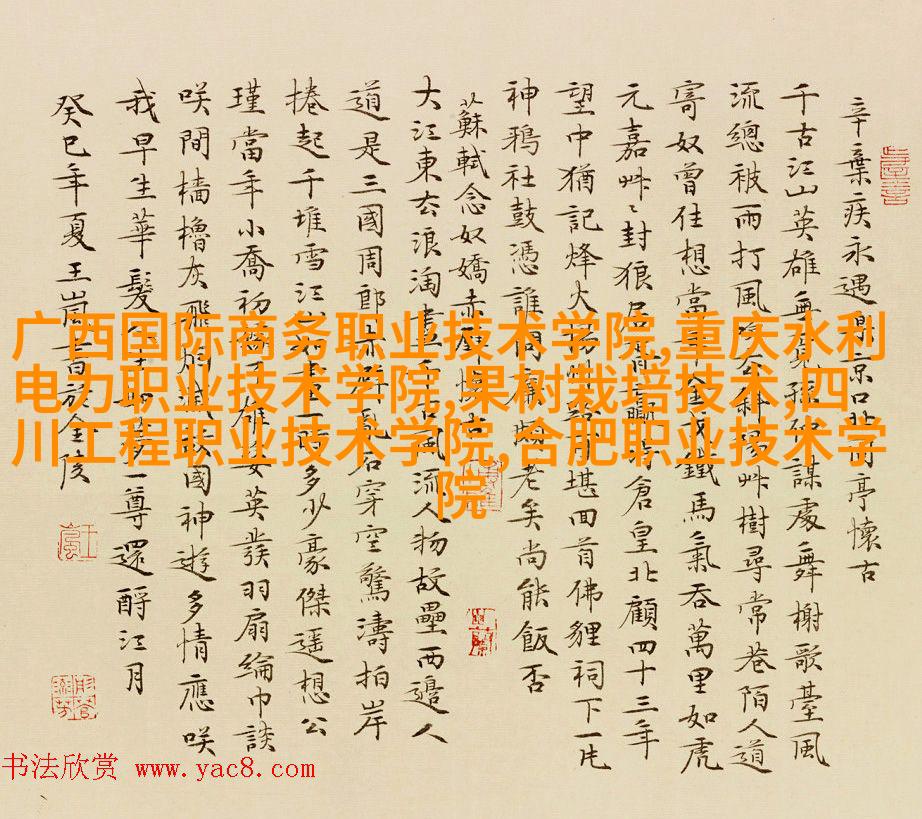 辛棄疾永遇樂京口北固亭懷古
千古江山英雄無覓孫仲謀處舞榭歌臺風
流總被雨打風吹去斜陽艸樹尋常巷陌人道
寄奴曾住想當年金戈鐵馬氣吞萬里如虎
元嘉艸〻封狼居胥贏得倉皇北顧四十三年
望中猶記烽火揚州路堪回首佛貍祠下一片
神鴉社鼓憑誰問廉頗老矣尚能飯否
蘇軾念奴嬌赤壁懷古
大江東去浪淘盡千古風流人物故壘西邊人
道是三國周郎赤壁亂石穿空驚濤拍岸
捲起千堆雪江山如畫一時多少豪傑遥想公
瑾當年小喬初嫁了雄姿英發羽扇綸巾談
咲間檣櫓灰飛煙滅故國神遊多情應咲
我早生華髮人生如夢一尊還酹江月
癸巳年夏王嵐書於金陵
广西国际商务职业技术学院,重庆水利
电力职业技术学院,果树栽培技术,四
川工程职业技术学院,合肥职业技术学
院
书法欣赏 www.yac8.com